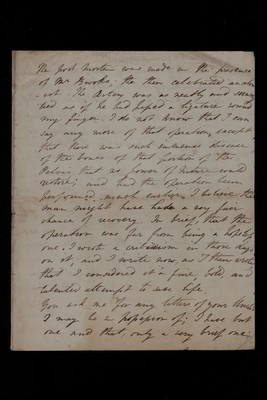 The post mortem was made in the presence
of Mr Brookes, the then celebrated anatom-
-ist. The Artery was as neatly and securely
tied as if he had passed a ligature round
my finger. I do not know that I can
say any more of that operation, except
that there was such immense disease
of the bones of that portion of the
Pelvis that no power of nature could
restore; and had the operation been
performed much earlier I believe the
man might have had a very fair
chance of recovery. In brief, that the
operation was far from being a hopeless
one. I wrote a criticism in those days
on it, and I write now, as I then wrote
that I considered it a fine, bold, and
talented attempt to save life.
You ask me for any letters of your Uncle's
I may be in possession of; I have but
one and that, only a very brief one,